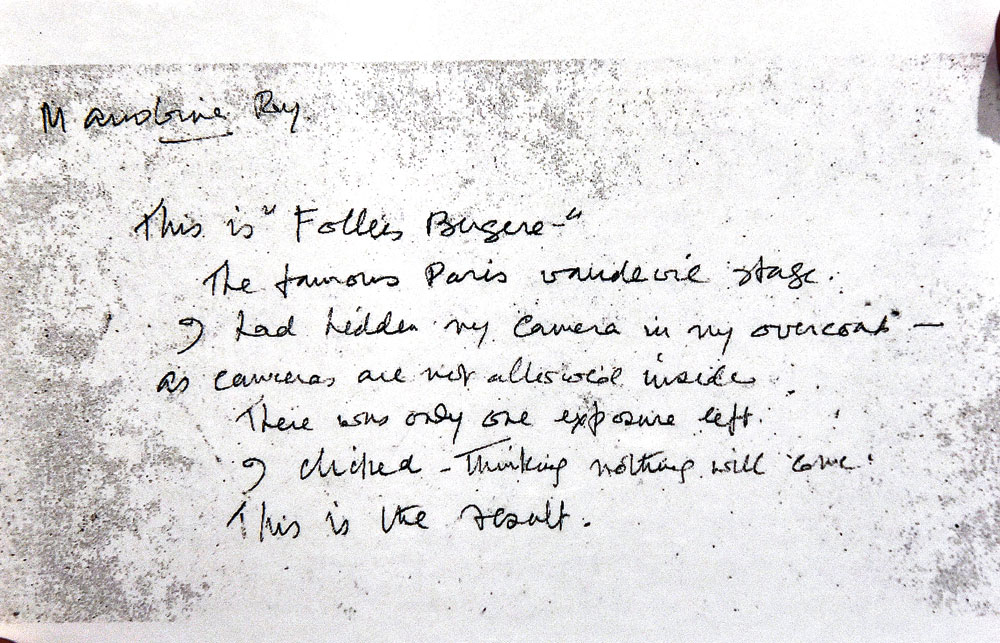 Manobina Roy
This is "Follies Bergere-"
The famous Paris vaudevie stage.
I had hidden my camera in my overcoat —
as cameras are not allowed inside
There was only one exposure left.
I clicked - Thinking nothing will come.
This is the result.